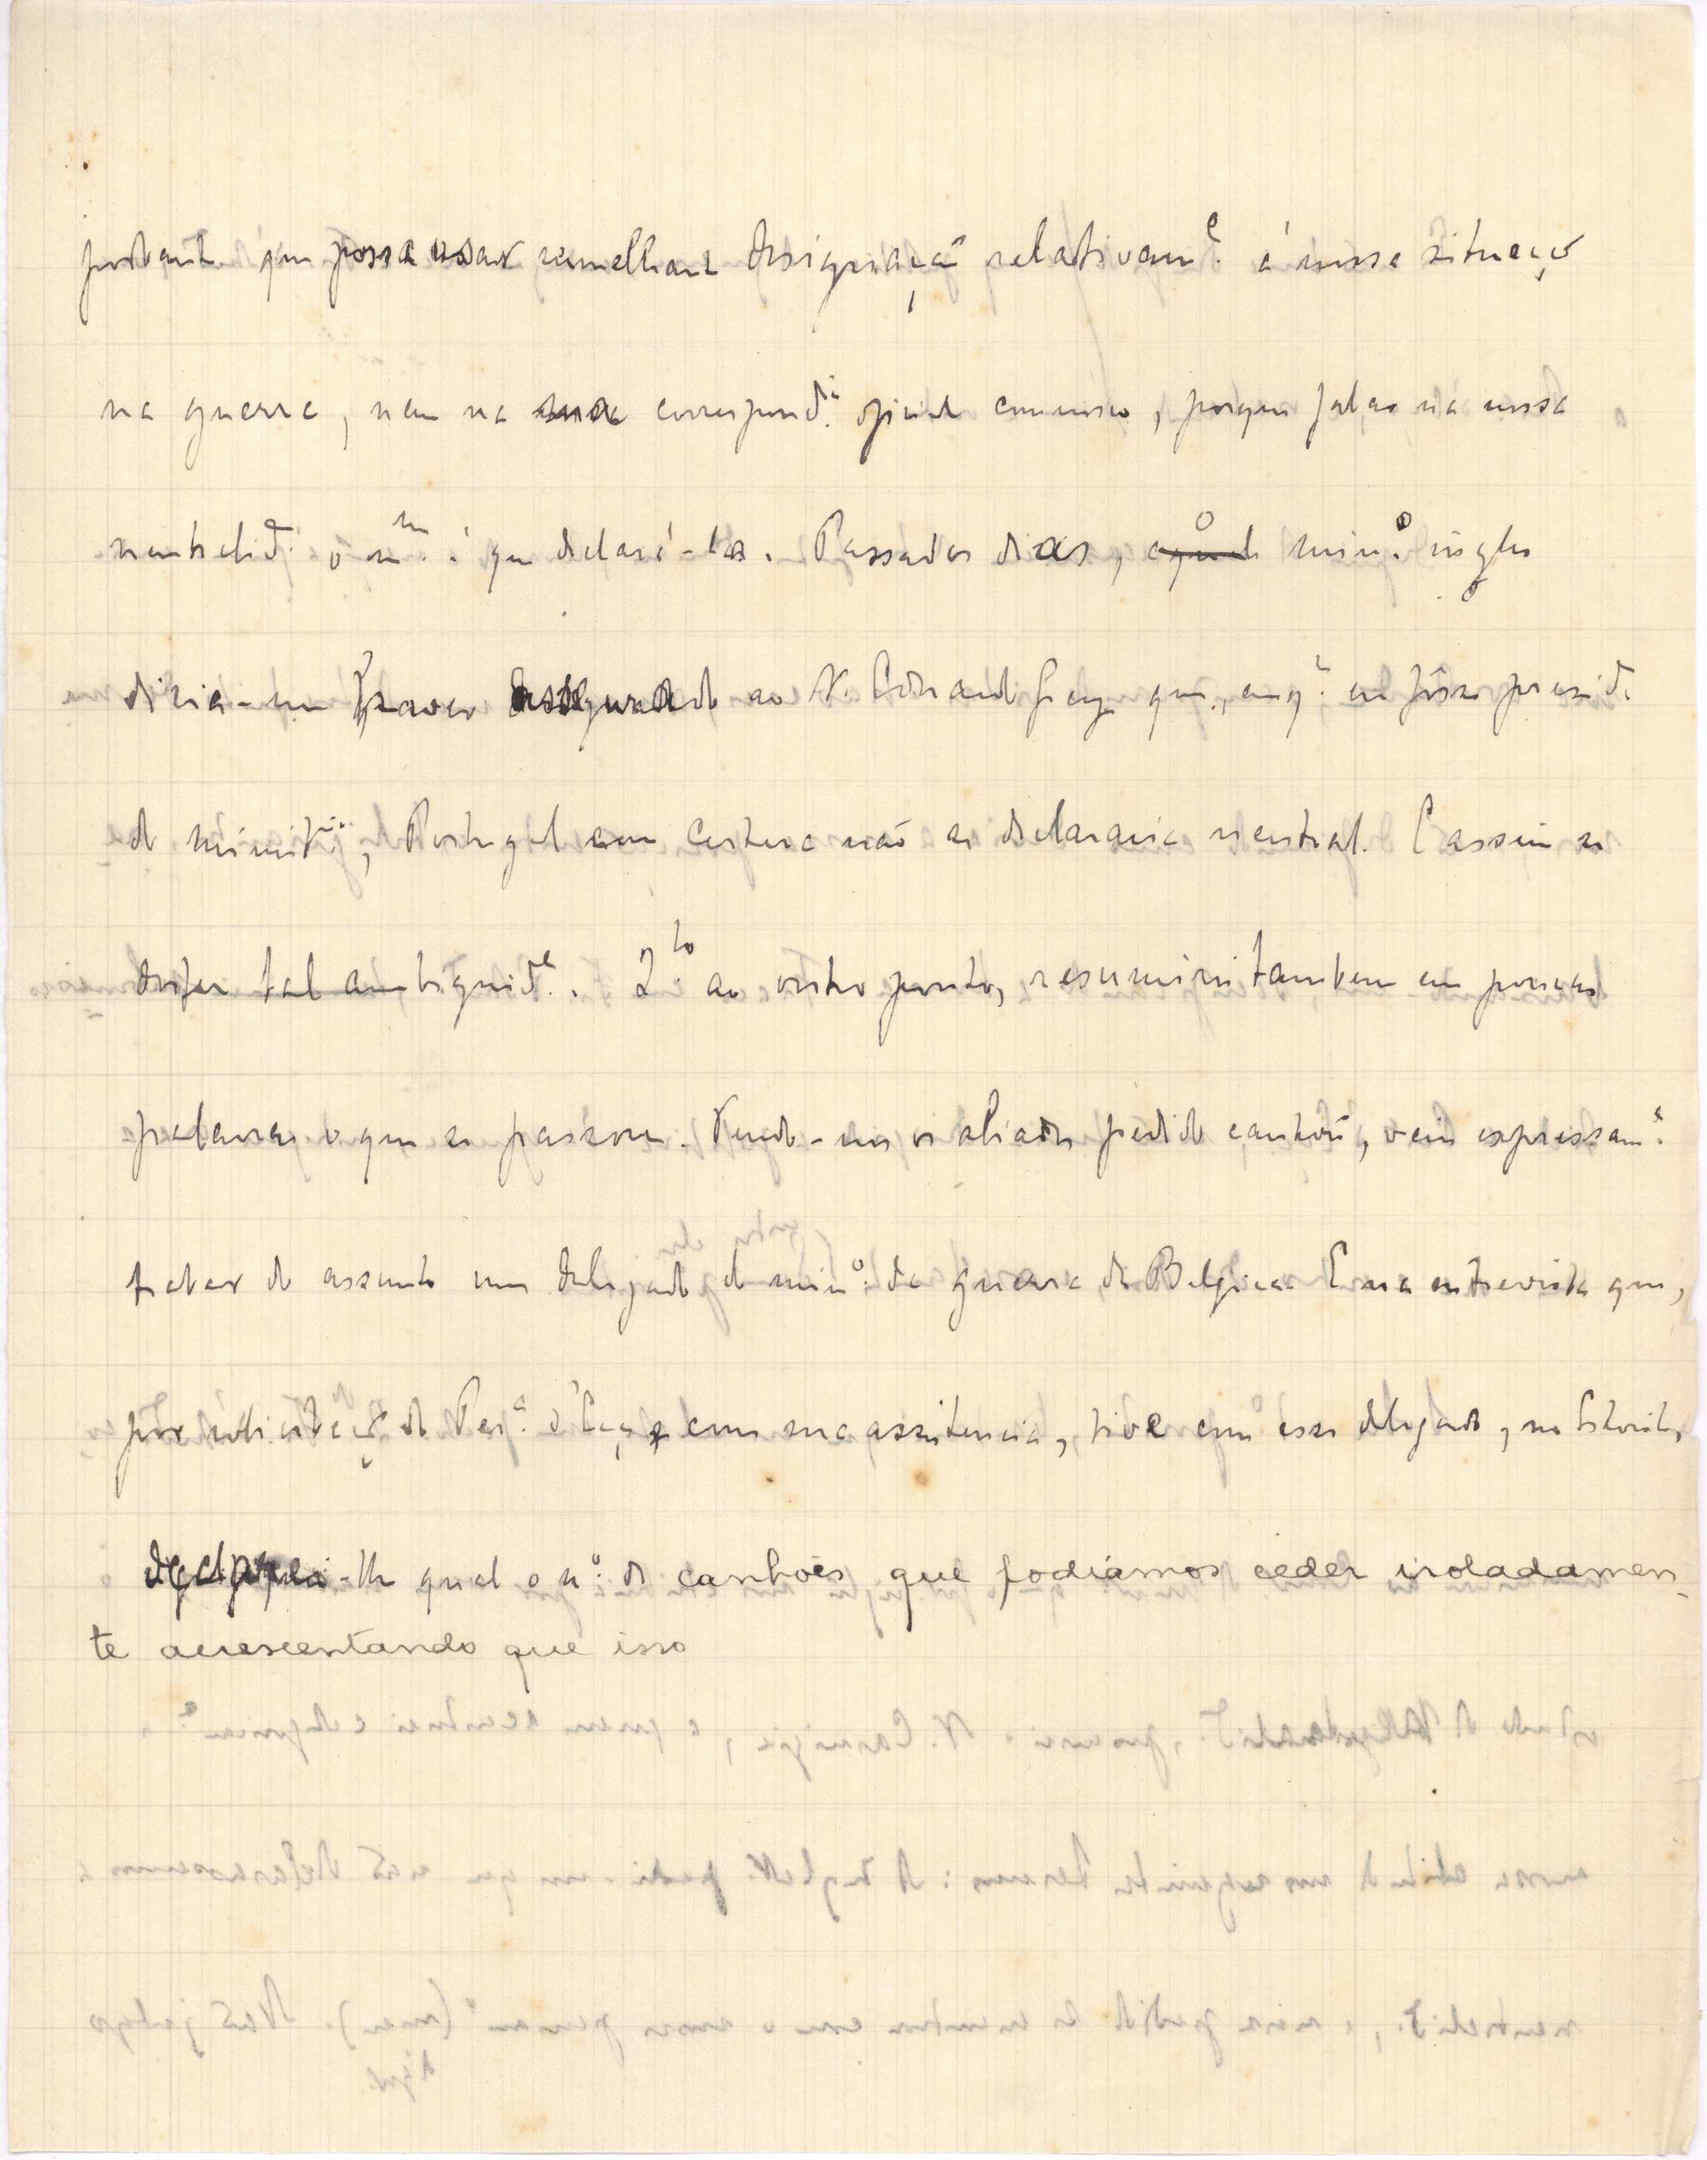 portanto que possa usar semelhante designação relativam.e á nossa situação
na guerra, nem na sua correspond.a oficial comnosco, porque falar na nossa
neutralid.e o m.mo é que declará-la. Passados dias, o min.o inglês
dizia-me haver assegurado ao S. Edward Grey que, emq.to eu fôsse presid.
do minist.io, Portugal com certeza não se declararia neutral. E assim se
desfez tal ambiguid.e. Q.to ao outro ponto, resumirei tambem em poucas
palavras o que se passou. Tendo-nos os aliados pedido canhões, veiu expressam.e
tratar do assunto um delegado do min.o da guerra da Belgica. E na entrevista que,
por solicitação do Per.a d'Eça e com sua assistencia, tive com esse delegado, no Estoril,
declarei-lhe qual o n.o de canhões que podiamos ceder isoladamen-
te acrescentando que isso